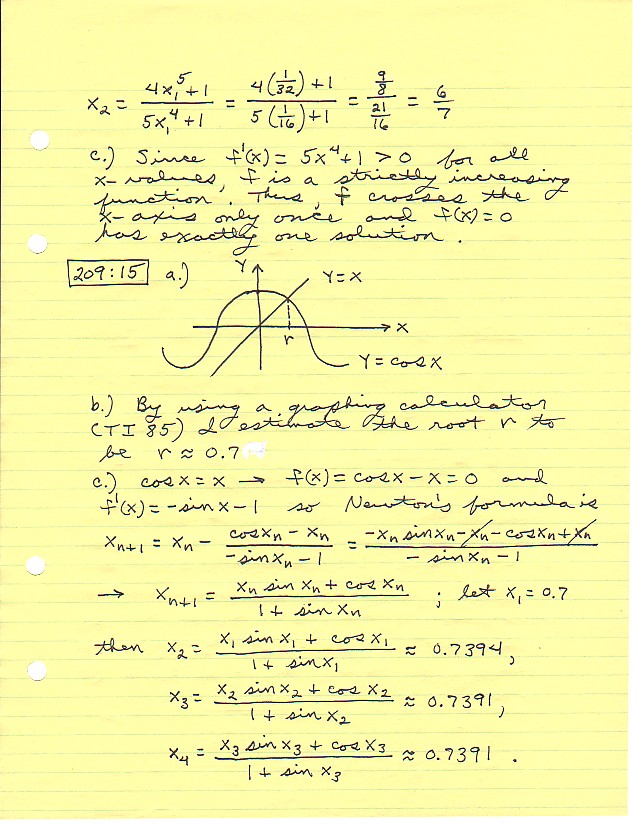 x₂ = (4x₁⁵+1)/(5x₁⁴+1) = (4(1/32)+1)/(5(1/16)+1) = (9/8)/(21/16) = 6/7
c.) Since f'(x) = 5x⁴+1 > 0 for all
x-values, f is a strictly increasing
function. Thus, f crosses the
x-axis only once and f(x)=0
has exactly one solution.
209:15 a.)
Y
Y=X
X
r
Y=cosX
b.) By using a graphing calculator
(TI 85) I estimate the root r to
be r ≈ 0.7
c.) cosx = x → f(x) = cosx - x = 0 and
f'(x) = -sinx - 1 so Newton's formula is
Xn+1 = Xn - (cosXn - Xn)/(-sinXn - 1) = (-Xn sinXn - Xn - cosXn + Xn)/(-sinXn - 1)
→ Xn+1 = (Xn sin Xn + cos Xn)/(1 + sin Xn) ; let X₁ = 0.7
then X₂ = (X₁ sin X₁ + cos X₁)/(1 + sinX₁) ≈ 0.7394,
X₃ = (X₂ sin X₂ + cos X₂)/(1 + sin X₂) ≈ 0.7391,
X₄ = (X₃ sin X₃ + cos X₃)/(1 + sin X₃) ≈ 0.7391 .